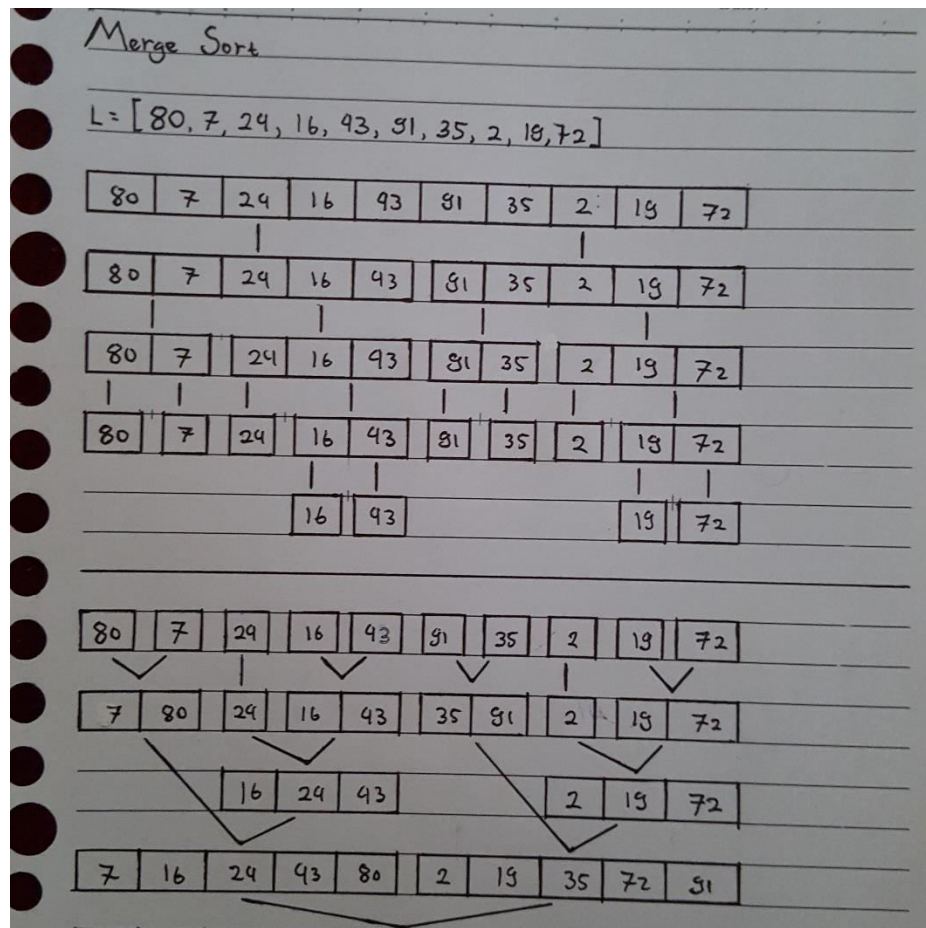 Merge Sort
L = [80, 7, 24, 16, 43, 91, 35, 2, 19, 72]
80 7 24 16 43 91 35 2 19 72
80 7 24 16 43 91 35 2 19 72
80 7 24 16 43 91 35 2 19 72
80 7 24 16 43 91 35 2 19 72
16 43 19 72
80 7 24 16 43 91 35 2 19 72
7 80 24 16 43 35 91 2 19 72
16 24 43 2 19 72
7 16 24 43 80 2 19 35 72 91